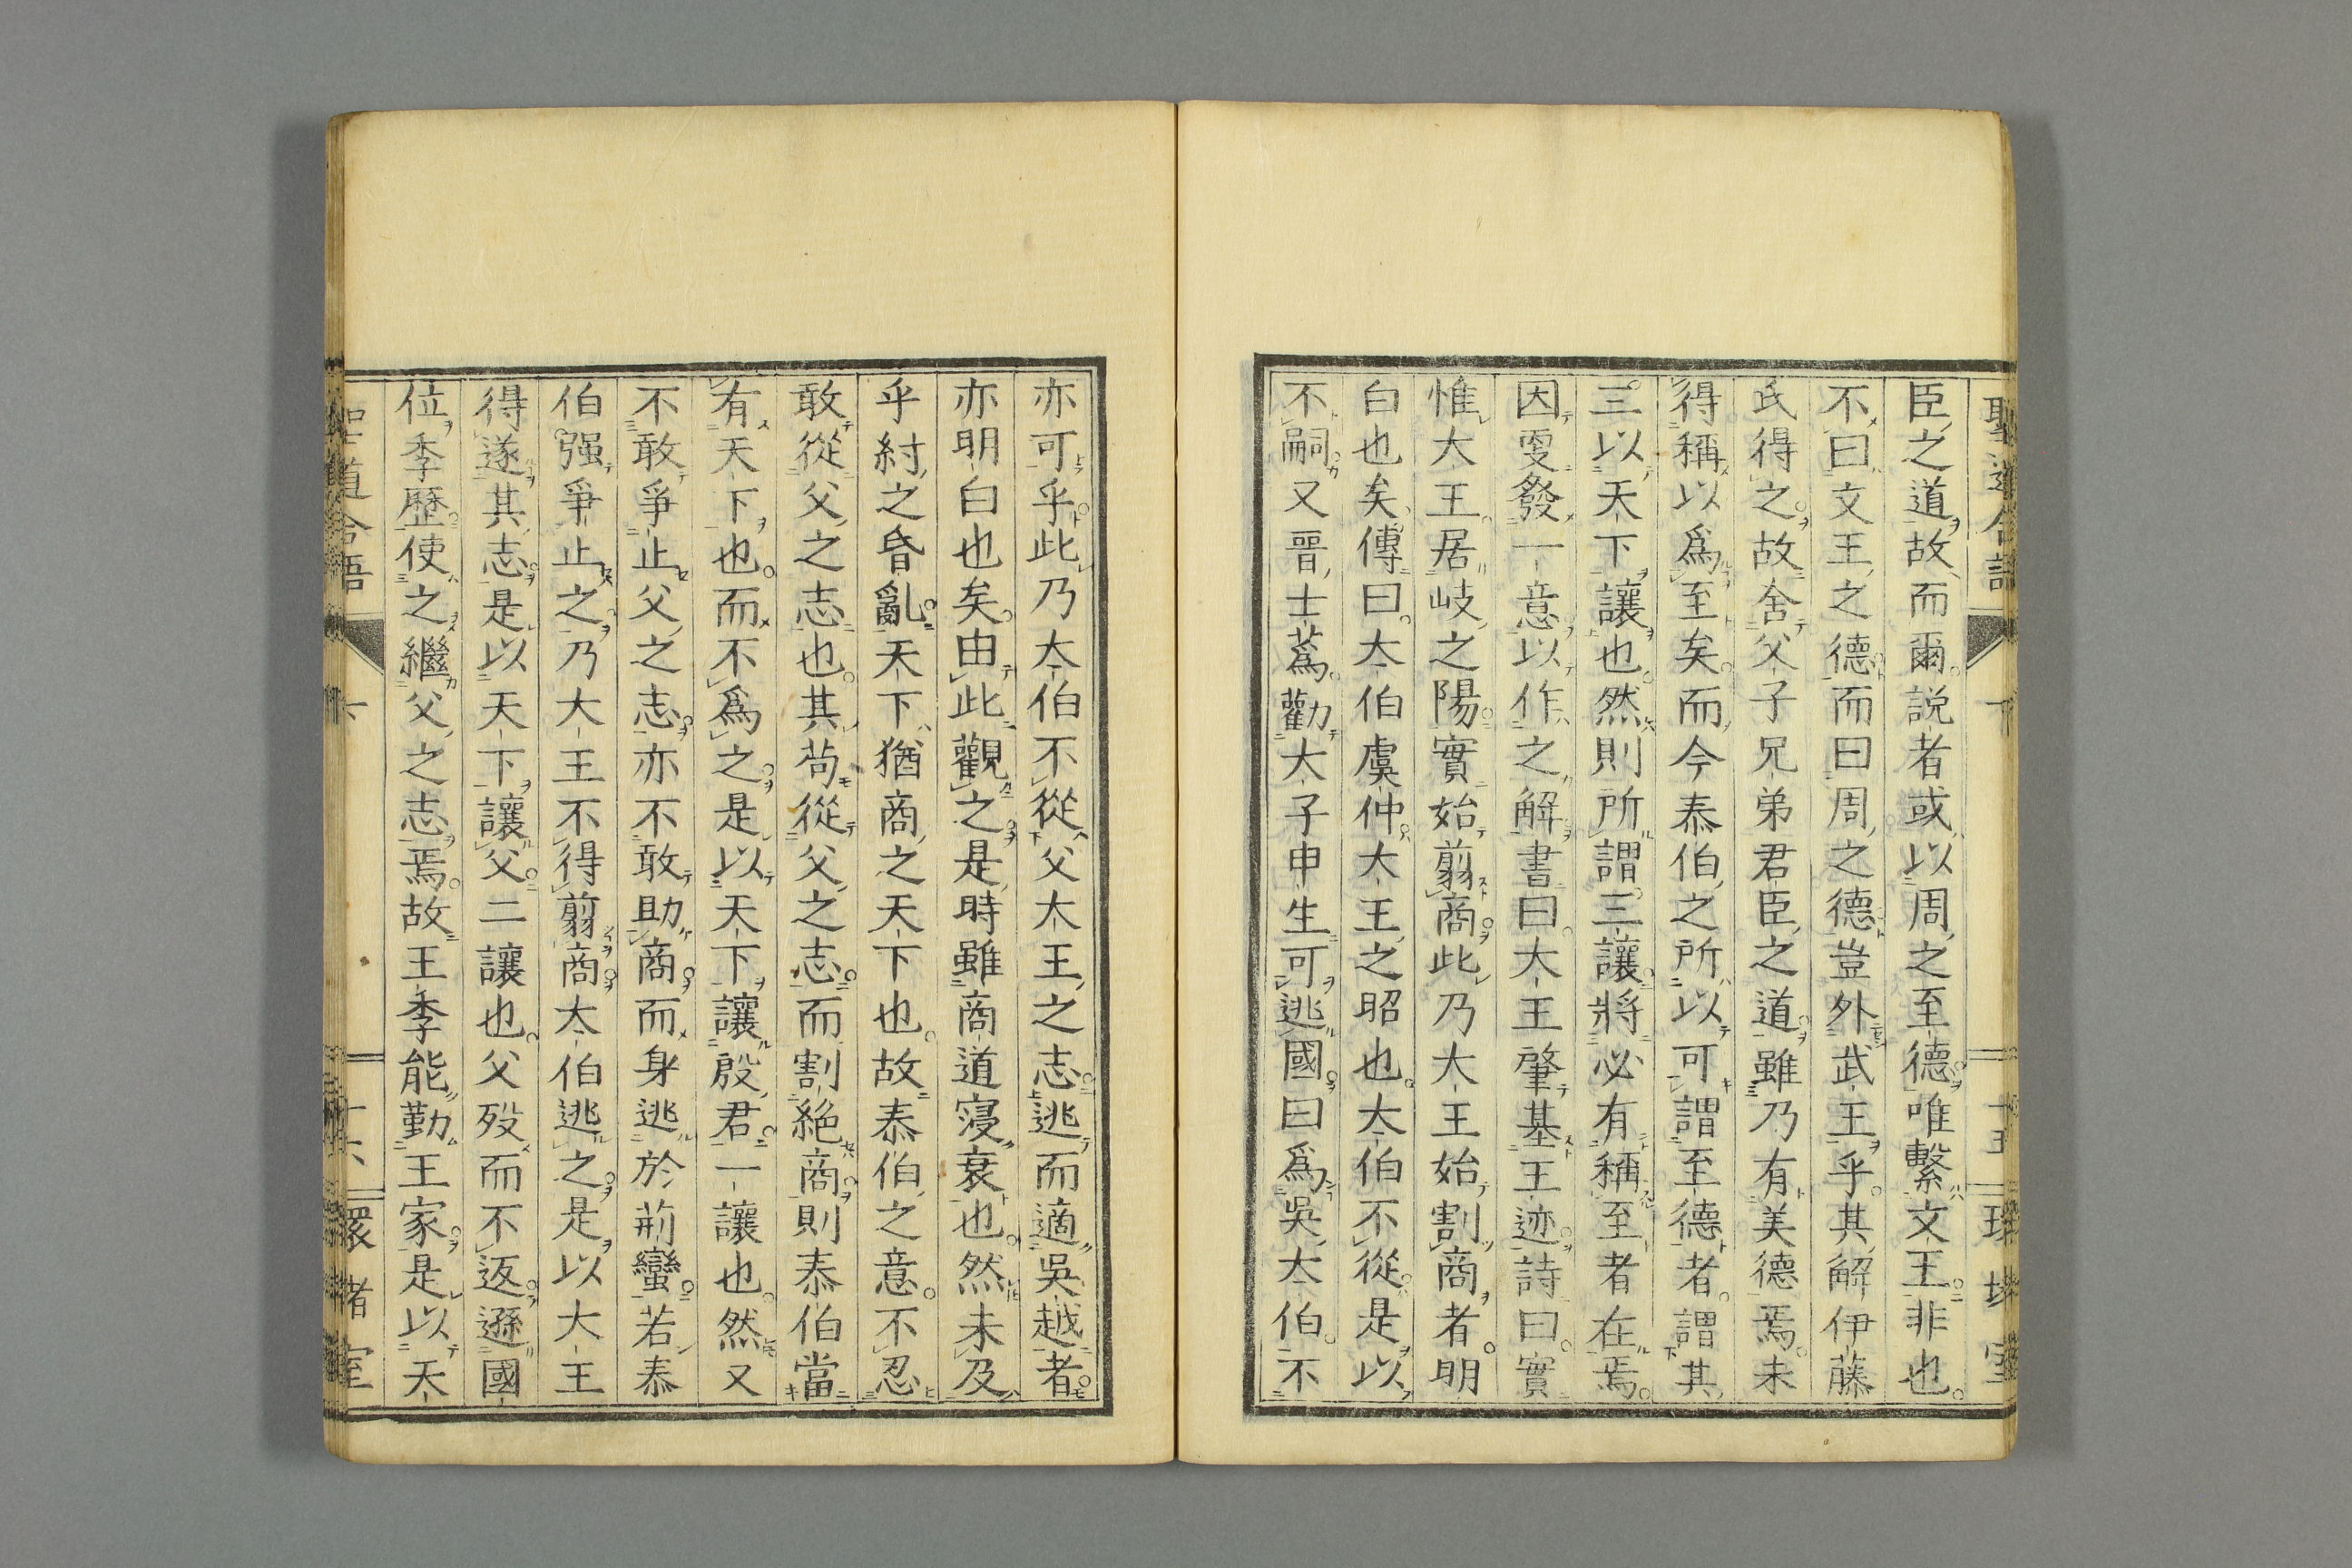 臣之道故而爾説者或以周之至德唯繫文王非也
不曰文王之德而曰周之德豈外武王乎其解伊藤
氏得之故舍父子兄弟君臣之道雖乃有美德焉未
得稱以爲至矣而今泰伯之所以可謂至德者謂其
三以天下讓也然則所謂三讓將必有稱至者在焉
因雯發一意以作之解書曰大王肇基王迹詩曰實
惟大王居岐之陽實始翦商此乃大王始割商者明
白也矣傳曰大伯虞仲大王之昭也大伯不從是以
不嗣又晉士蒍勸大子申生可逃國曰爲吳大伯不
亦可乎此乃大伯不從父大王之志逃而適吳越者
亦明白也矣由此觀之是時雖商道寖衰也然未及
乎紂之昏亂天下猶商之天下也故泰伯之意不忍
敢從父之志也其苟從父之志而割絶商則泰伯當
有天下也而不爲之是以天下讓殷君一讓也然又
不敢爭止父之志亦不敢助商而身逃於荊蠻若泰
伯强爭止之乃大王不得翦商大伯逃之是以大王
得遂其志是以天下讓父二讓也父歿而不返遜國
位季歷使之繼父之志焉故王季能勤王家是以天